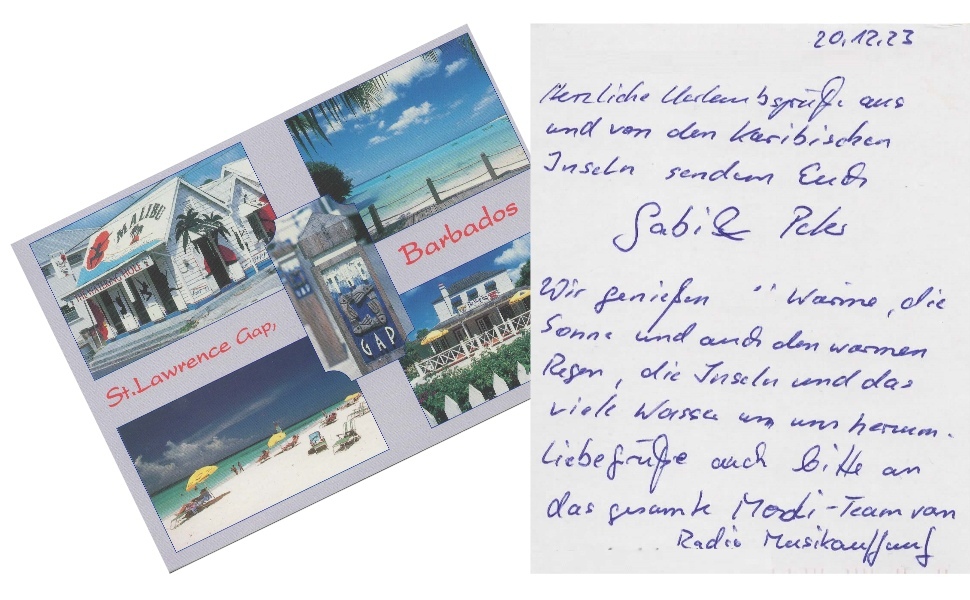 MALIBU
Barbados
St.Lawrence Gap,
GAP
20.12.23
Herzliche Urlaubsgrüße aus
und von den Karibischen
Inseln senden Euch
Sabi & Peter
Wir genießen Wärme, die
Sonne und auch den warmen
Regen, die Inseln und das
viele Wasser um uns herum.
Liebe Grüße auch bitte an
das gesamte Modi-Team von
Radio Musikauf